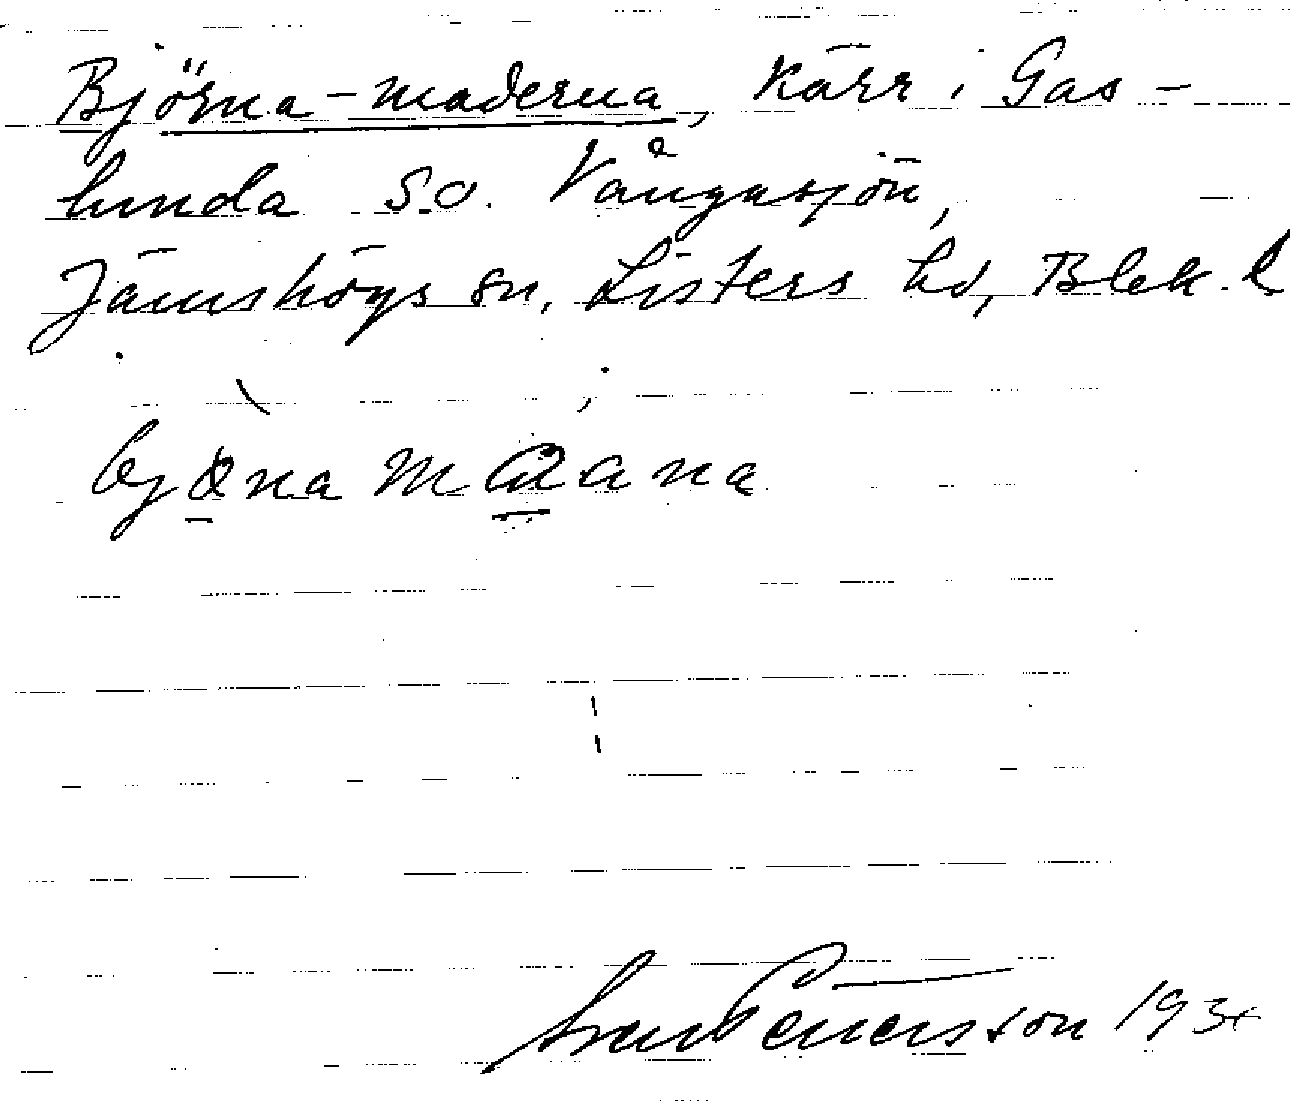 Björna-maderna, kärr i Gas-
lunda S.O. Vångasjön,
Jämshögs sn, Listers hd, Blek. l
bjöna maana
1934